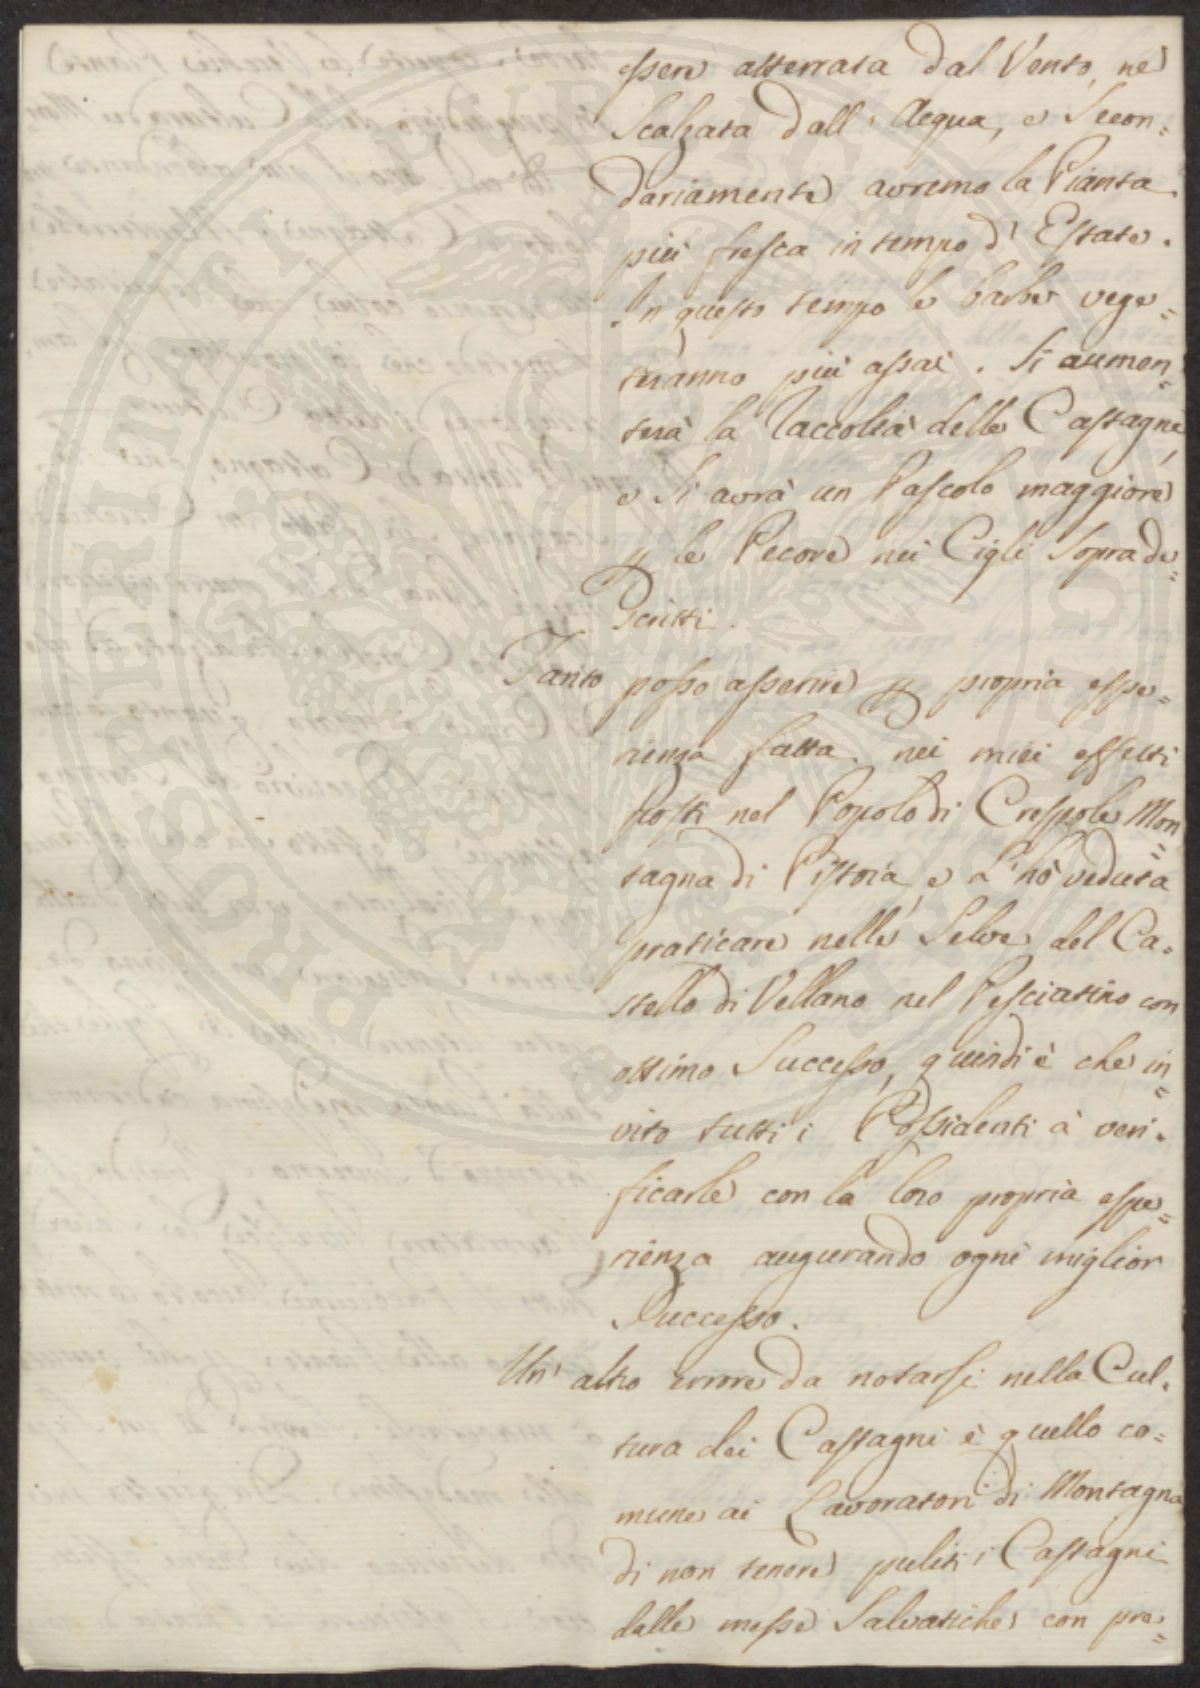 essere atterrata dal Vento, nè
Scalzata dall' Acqua, e Secon=
dariamente avremo la Pianta
più fresca in tempo d' Estate.
In questo tempo le barbe vege=
teranno più assai. Si aumen=
terà la Raccolta delle Castagne,
e si avrà un Pascolo maggiore
p le Pecore nei Cigli Soprade=
Scritti.
Tanto posso asserire p propria espe=
rienza fatta nei miei effetti
posti nel Popolo di Crespole Mon=
tagna di Pistoia, e L'hò veduta
praticare nelle Selve del Ca=
stello di Vellano nel Pesciatino con
ottimo Successo, quindi è che in=
vito tutti i Possidenti à veri=
ficarle con la loro propria espe=
rienza augurando ogni miglior
Successo.
Un' altro errore da notarsi nella Cul=
tura dei Castagni è quello co=
mune ai Lavoratori di Montagna
di non tenere puliti i Castagni
dalle messe Salvatiche con pre=
PROSPERITATI PUBLICAE AUGENDAE